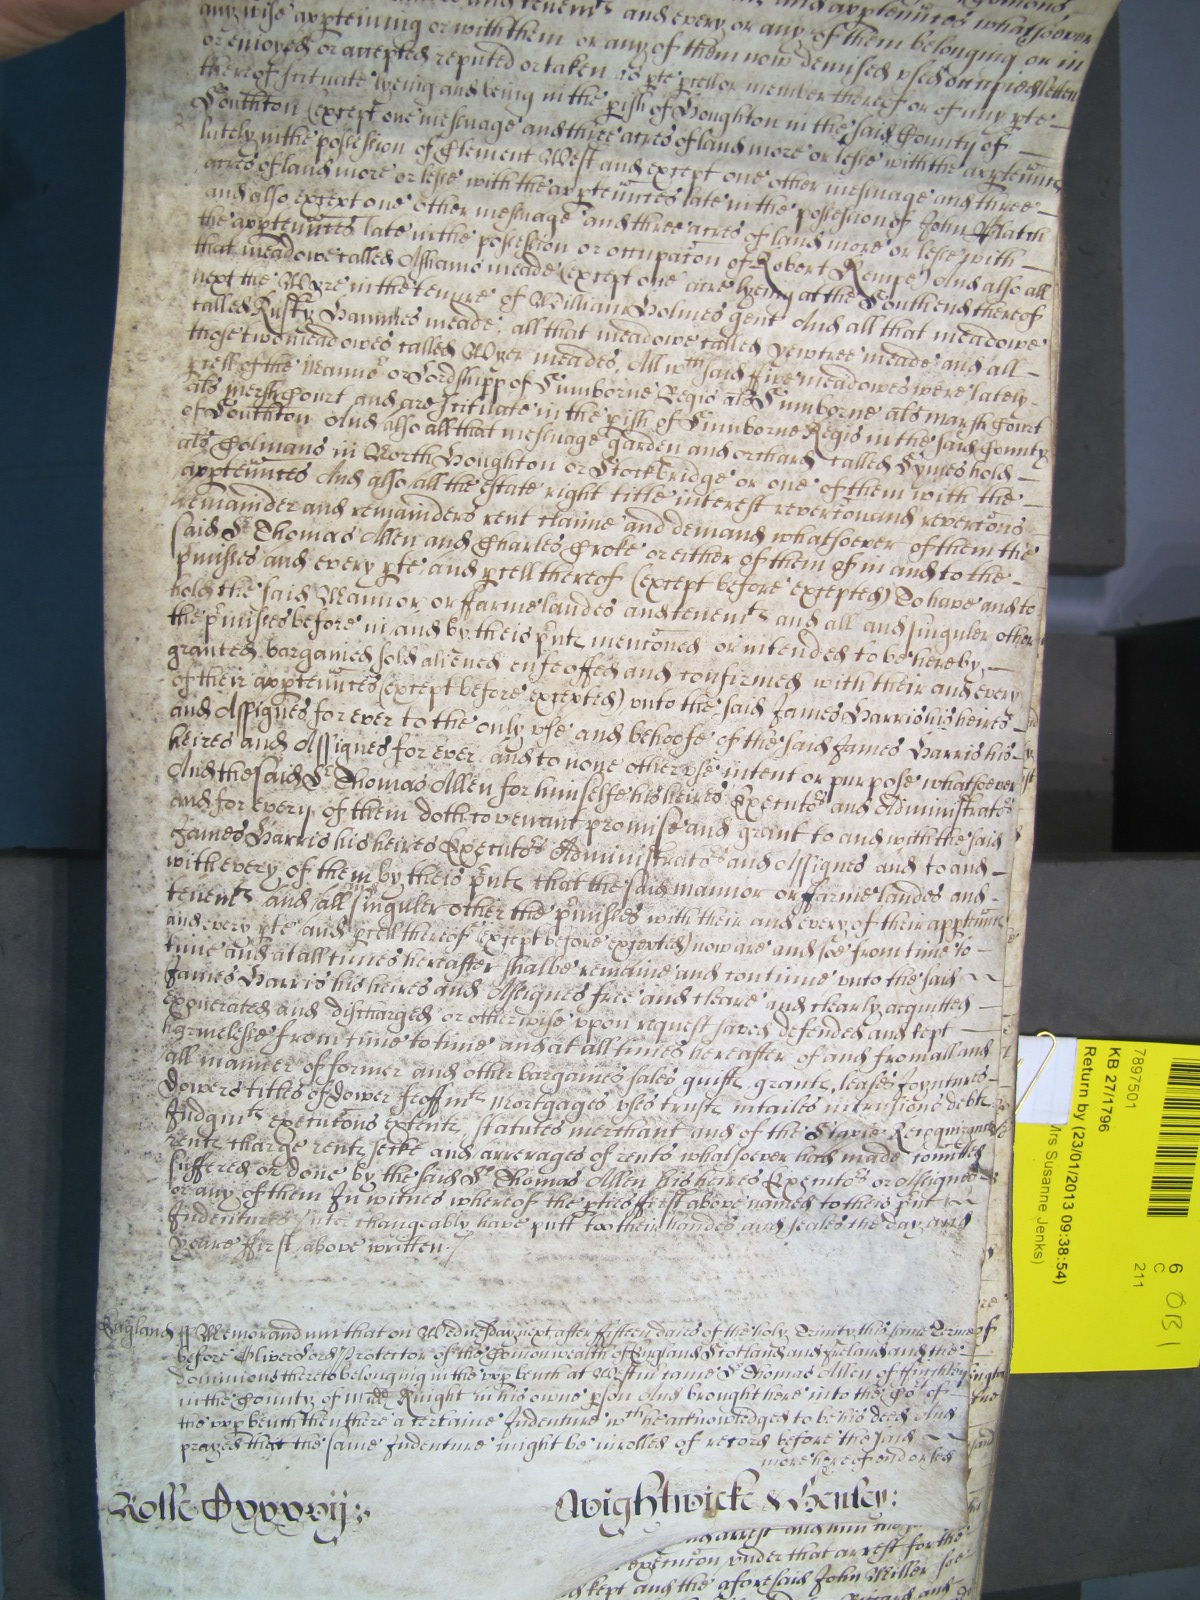 any wise appteining or with them or any of them now demised used occupied letten
or enioyed or accepted reputed or taken as pte pcell or member thereof or of any pte
thereof scituate lyeing and being in the pish of Houghton in the said County of
Southton (except one mesuage and three acres of land more or lesse with the apptenñces
lately in the possession of Clement West and except one other mesuage and three
acres of land more or lesse with the apptenñces late in the possession of John
and also except one other mesuage and three acres of land more or lesse with
the apptenñces late in the possession or occupacon of Robert Kempe) And also all
that meadowe called Asshams meade (except one acre lyeing at the Southend thereof
next the Wyre in the tenure of William Holmes gent And all that meadowe
called Rusky Hammes meade, all that meadowe called Yewtree meade and all
those two meadowes called Wyer meades, All wch said ffive meadowes were lately
pcell of the Mannor or Lordshipp of Sumborne Regis als Sumborne als marsh Court
als mersh Court and are scituate in the pish of Sumborne Regis in the said County
of Southton And also all that mesuage garden and orchard called Symes hold
als Colmans in North Houghton or Stockbridge or one of them with the
apptenñces And also all the estate right title interest revercon and revercons
remainder and remainders rent claime and demand whatsoever of them the
said Sr Thomas Allen and Charles Croke or either of them of in and to the
pmisses and every pte and pcell thereof (except before excepted) To have and to
hold the said Mannor or ffarme landes and tenemts and all and singuler other
the pmisses before in and by theis pnts menconed or intended to be hereby
granted bargained sold aliened enfeoffed and confirmed with their and every
of their apptenñces (except before excepted) unto the said James Harris his heires
and Assignes for ever to the only use and behoofe of the said James Harris his
heires and Assignes for ever and to none other use intent or purpose whatsoever
And the said Sr Thomas Allen for himselfe his heires Executors and Administrators
and for every of them doth covenant promise and grant to and with the said
James Harris his heires Executors Administrators and Assignes and to and
with every of them by theis pnts that the said mannor or ffarme landes and
tenemts and all and singuler other the pmisses with their and every of their apptenñces
and every pte and pcell thereof (except before excepted) now are and soe from time to
time and at all times hereafter shalbe remaine and continue unto the said
James Harris his heires and Assignes free and cleare and clearly acquitted
exonerated and discharged or otherwise upon request saved defended and kept
harmelesse from time to time and at all times hereafter of and from all and
all manner of former and other bargaines sales guifts grants, leases Joyntures
Dowers titles of dower feoffmts mortgages uses trusts intailes intrusions debts
Judgmts execucons extents statutes merchant and of the Staple Recognizances
rents charge rents secke and arrerages of rents whatsoever had made comitted
suffered or done by the said Sr Thomas Allen his heires Executors or Assignes
or any of them In witnes whereof the pties ffirst above named to theis pnt
Indentures interchangeably have putt too their handes and seales the day and
yeare ffirst above written.
England ss Memorandum that on Wednesday next after fifteen daies of the holy Trinity this same Terme
before Oliver Lord Protector of the Comonwealth of England Scotland and Ireland and the
dominions thereto belonging in the upp bench at Westm came Sr Thomas Allen of ffinchley
in the County of Midd Knight in his owne pson And brought here into the Co of
the upp bench then there a certaine Indenture wch he acknowledged to be his deed And
prayed that the same Indenture might be inrolled of record before the said
more hereof endorsed
Rolle Oxxxvij:
Wightwicke & Henley:
execucon under that arrest for the
kept and the aforesaid John Miller soe
7897501
KB 27/1796
Return by (23/01/2013 09:38:54)
Mrs Susanne Jenks)
6
C
211